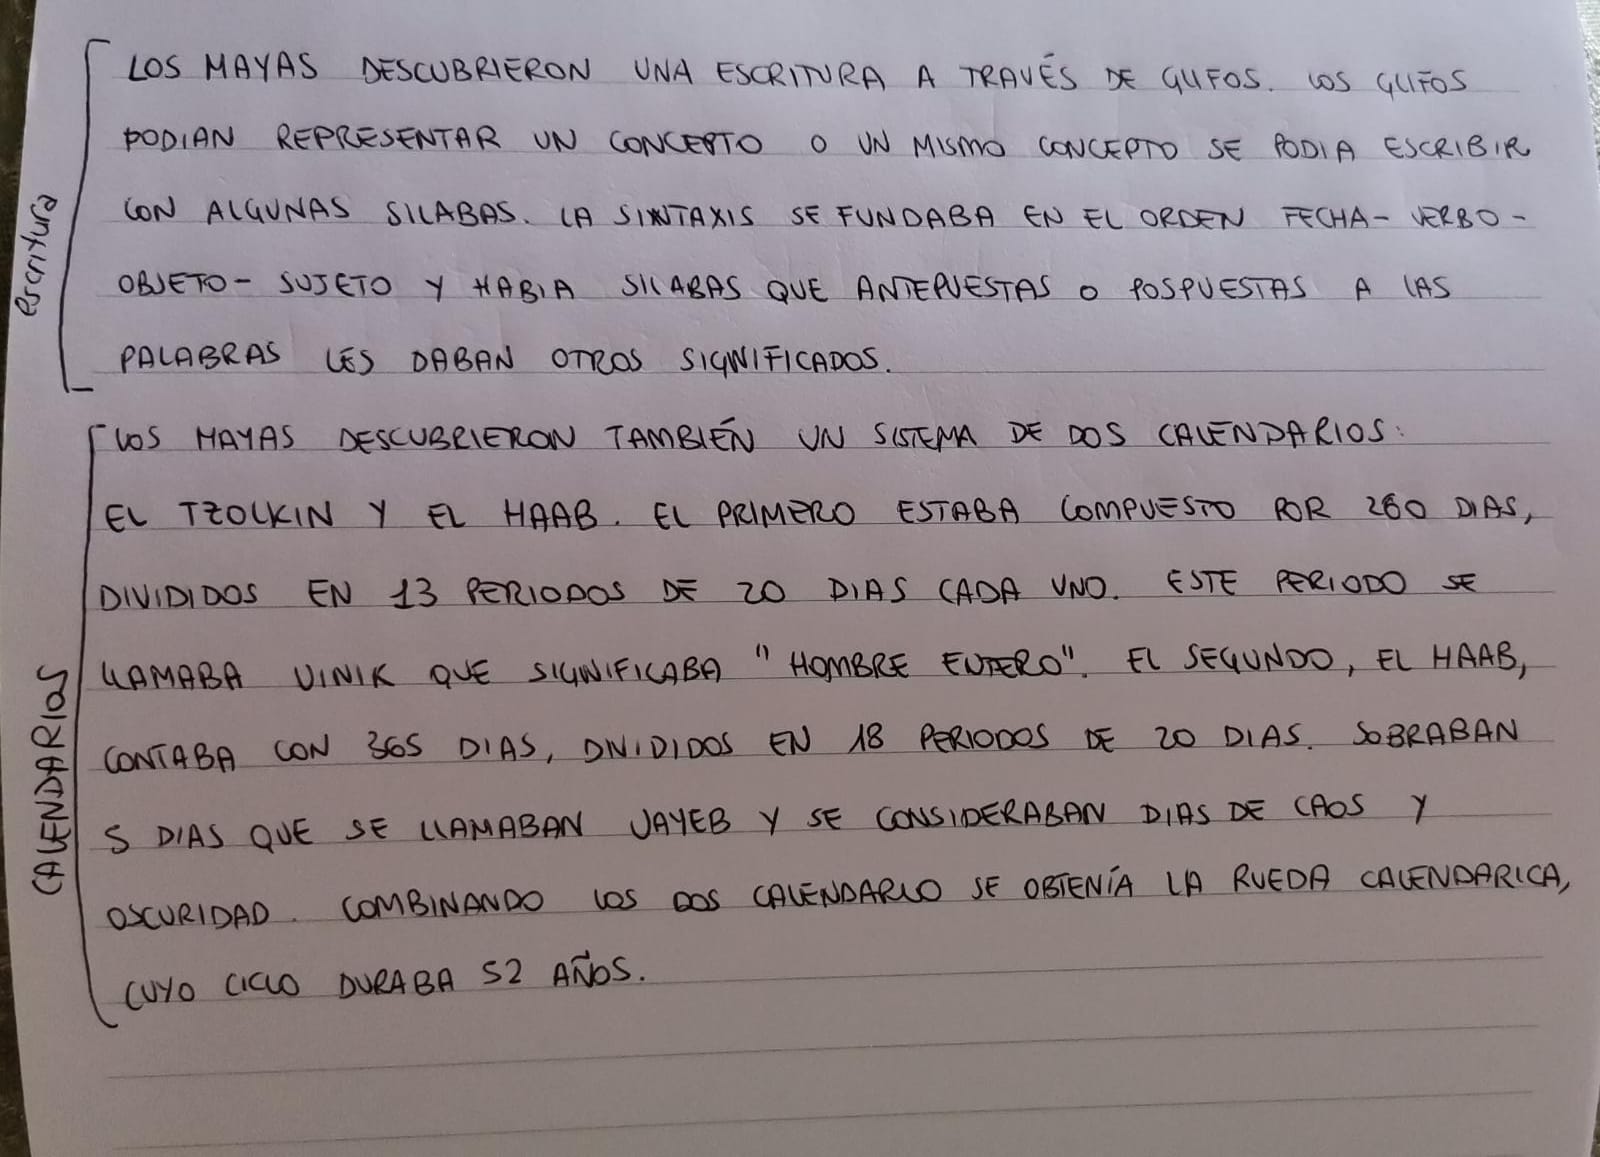 escritura
LOS MAYAS DESCUBRIERON UNA ESCRITURA A TRAVÉS DE GLIFOS. LOS GLIFOS
PODIAN REPRESENTAR UN CONCEPTO O UN MISMO CONCEPTO SE PODIA ESCRIBIR
CON ALGUNAS SILABAS. LA SINTAXIS SE FUNDABA EN EL ORDEN FECHA- VERBO-
OBJETO- SUJETO Y HABIA SILABAS QUE ANTEPUESTAS O POSPUESTAS A LAS
PALABRAS LES DABAN OTROS SIGNIFICADOS.
CALENDARIOS
LOS MAYAS DESCUBRIERON TAMBIÉN UN SISTEMA DE DOS CALENDARIOS:
EL TZOLKIN Y EL HAAB. EL PRIMERO ESTABA COMPUESTO POR 260 DIAS,
DIVIDIDOS EN 13 PERIODOS DE 20 DIAS CADA UNO. ESTE PERIODO SE
LLAMABA UINIK QUE SIGNIFICABA "HOMBRE ENTERO". EL SEGUNDO, EL HAAB,
CONTABA CON 365 DIAS, DIVIDIDOS EN 18 PERIODOS DE 20 DIAS. SOBRABAN
5 DIAS QUE SE LLAMABAN UAYEB Y SE CONSIDERABAN DIAS DE CAOS Y
OSCURIDAD. COMBINANDO LOS DOS CALENDARIO SE OBTENÍA LA RUEDA CALENDARICA,
CUYO CICLO DURABA 52 AÑOS.